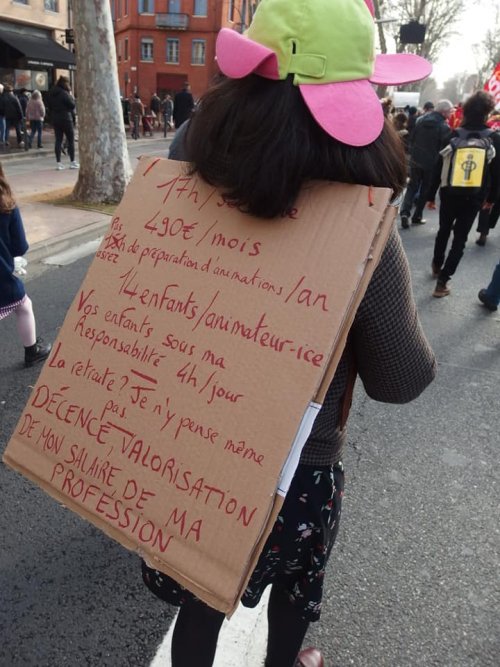 17h/se
490€/mois
Pas assez
15h de préparation d'animations/an
14 enfants/animateur·ice
Vos enfants sous ma
Responsabilité 4h/jour
La retraite? Je n'y pense même
pas
DÉCENCE, VALORISATION
DE MON SALAIRE, DE MA
PROFESSION